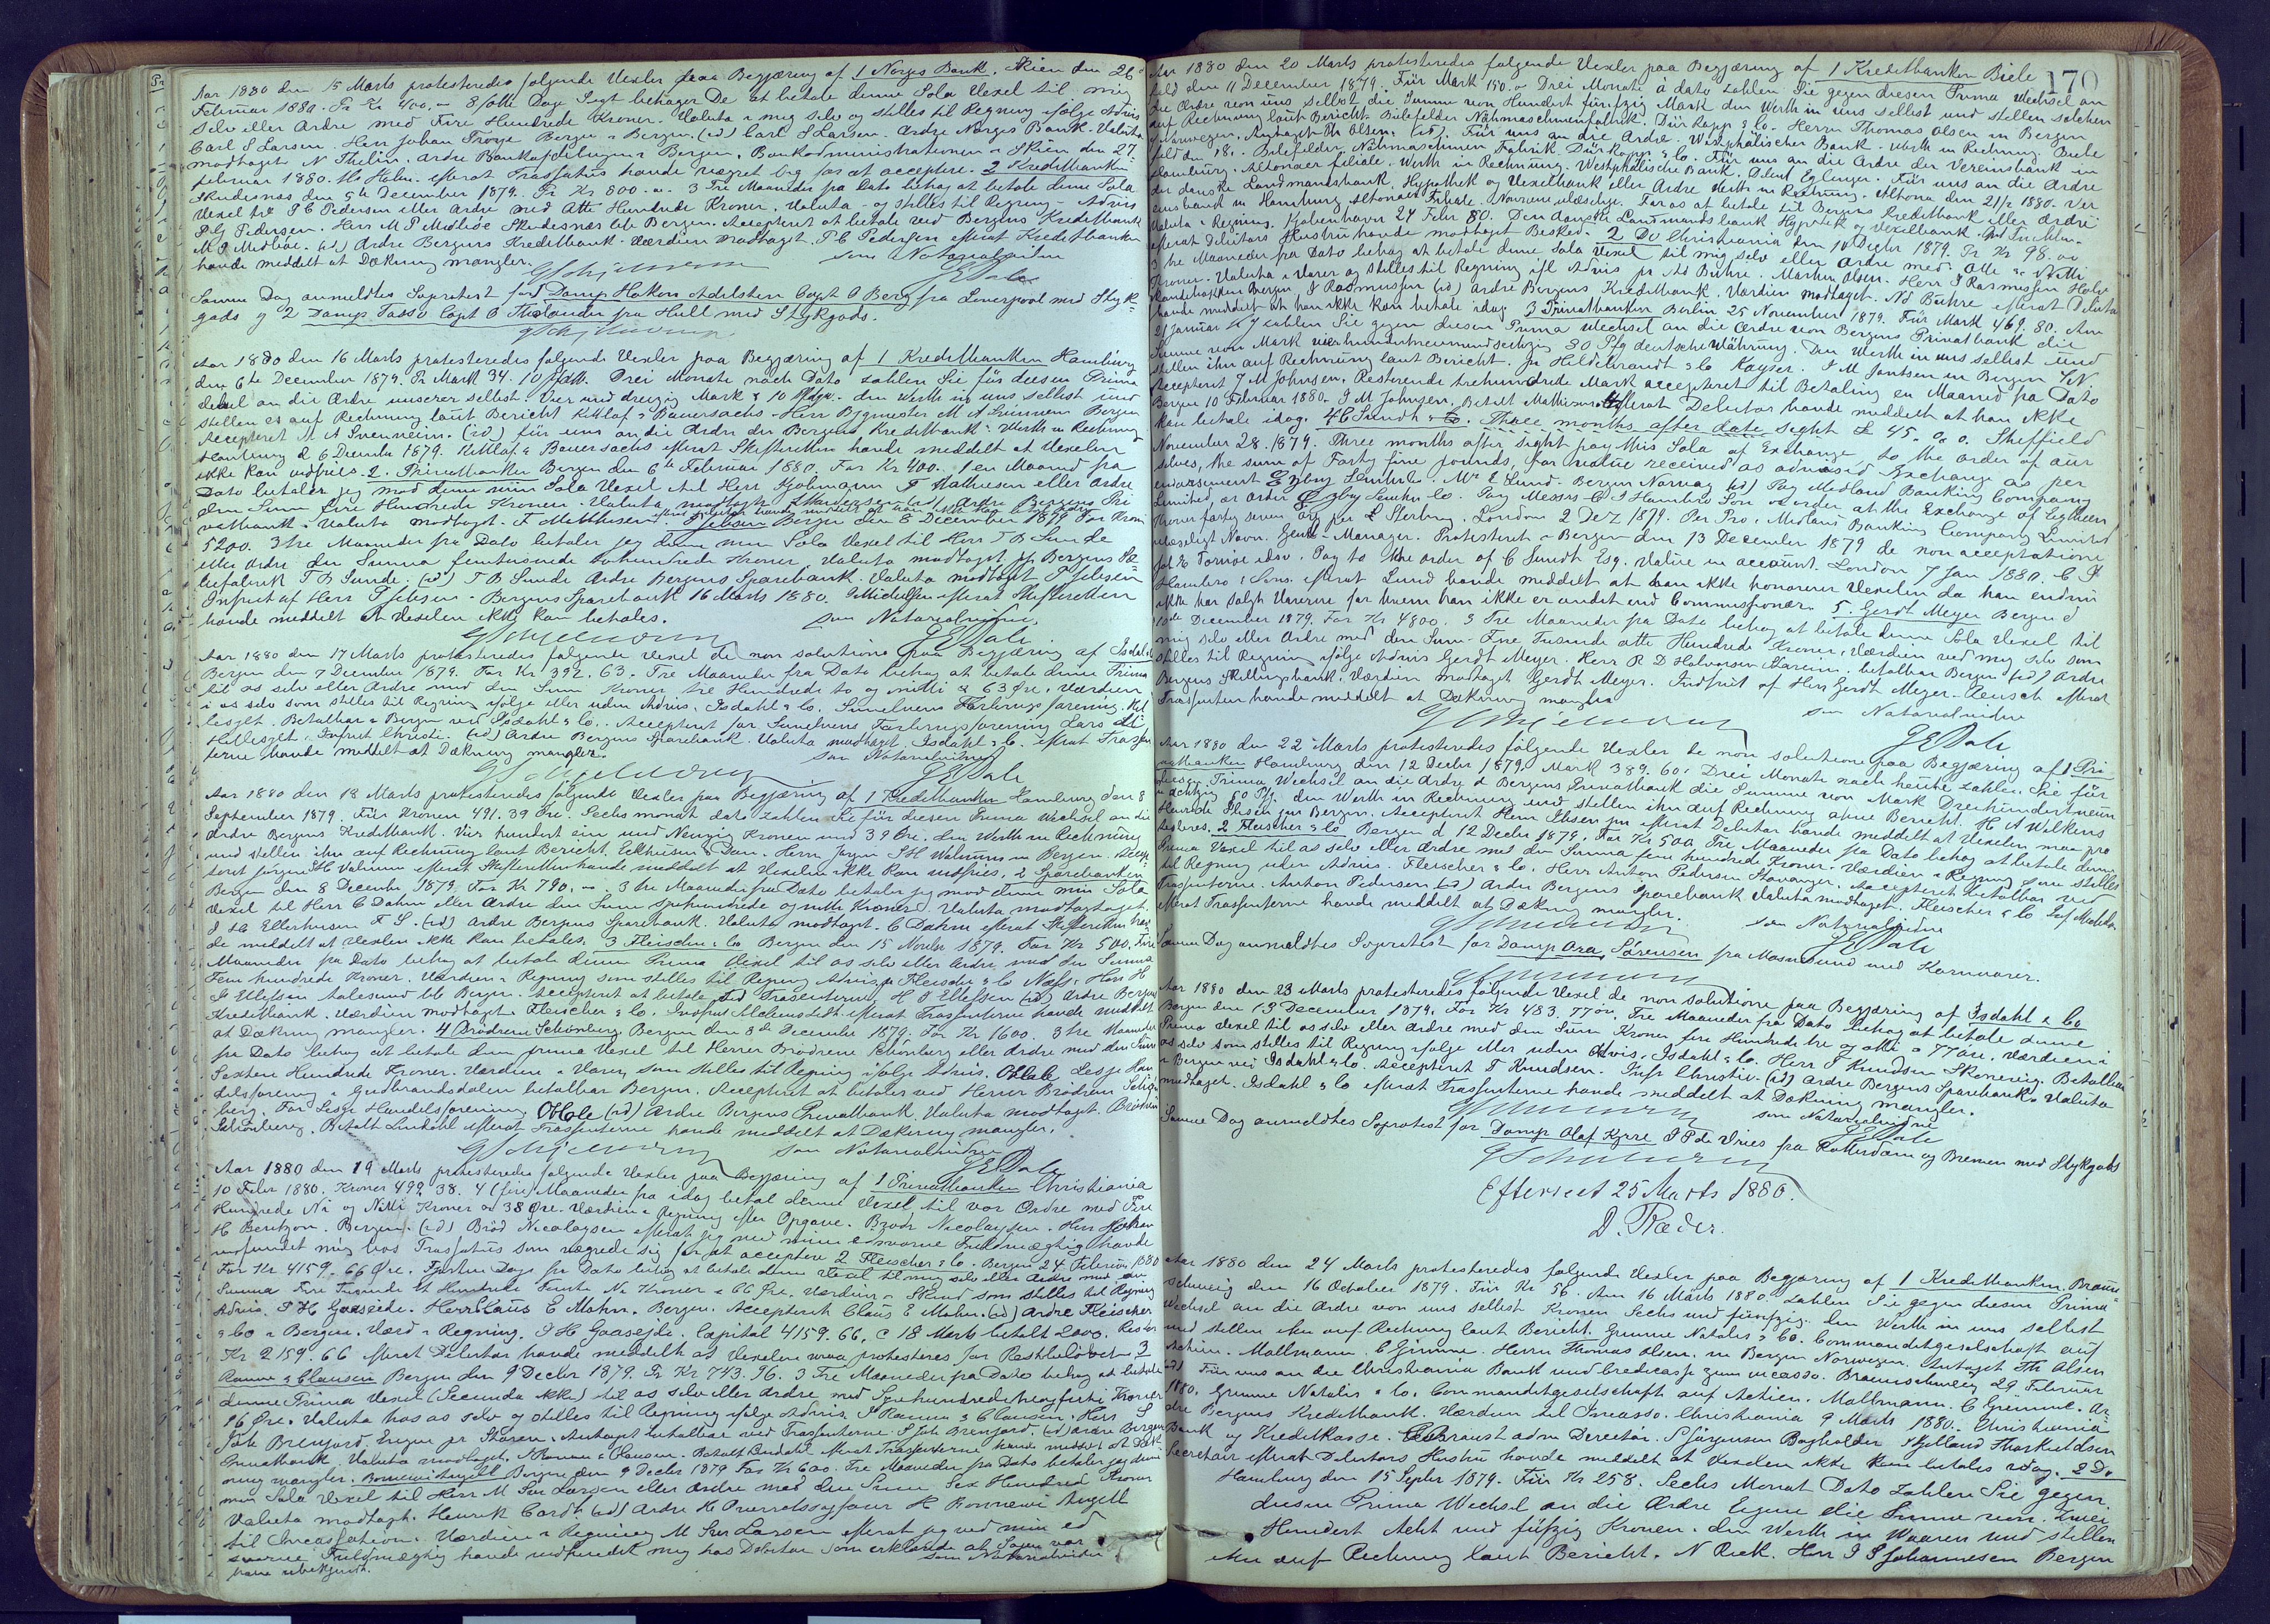 Aar 1880 den 15 Marts protesteredes følgende Vexler paa Begjæring af 1 Norges Bank. Skien den 26
Februar 1880. Pr Kr 400. 8 otte Dage Sigt behager De at betale denne Sola Vexel til mig
selv eller Ordre med Fire Hundrede Kroner. Valuta i mig selv og stilles til Regning ifølge Advis
Carl S Larsen. Herr Johan Troye Bergen. Bergen. (id) Carl S Larsen. Ordre Norges Bank. Valuta
modtaget N Thelin. Ordre Bankafdelingen i Bergen. Bankadministrationen i Skien den 27
Februar 1880. efterat Trassatus havde vægret sig for at acceptere. 2 Kreditbanken
Skudesnæs den 5te December 1879. Pr Kr 800. 3 Tre Maaneder fra Dato behag at betale denne Sola
Vexel til P G Pedersen eller Ordre med Otte Hundrede Kroner. Valuta og stilles til Regning Advis
P G Pedersen. Herr M P Midbøe Skudesnæs bb Bergen. Accepteret at betale ved Bergens Kreditbank
M P Midbøe. (id) Ordre Bergens Kreditbank. Værdien modtaget. P G Pedersen efterat Kreditbanken
havde meddelt at Dækning mangler.
som Notarialvidne
Samme Dag anmeldtes Søprotest for 1 Damp Hakon Adelsten Capt O Berg fra Liverpool med Styk-
gods og 2 Damp Tasso Capt O Thelander fra Hull med Stykgods.
Aar 1880 den 16 Marts protesteredes følgende Vexler paa Begjæring af 1 Kreditbanken Hamburg
den 6te December 1879. Pr Mark 34. 10 Drei Monate nach Dato zahlen Sie für diesen Prima
Wechsel an die Ordre unserer selbst Vier und dreizig Mark & 10 den Werth in uns selbst und
stellen es auf Rechnung laut Bericht Kittlaf & Bauersachs. Herr Bygmester M A Svenneim Bergen
Accepteret M A Svenneim. (id) für uns an die Ordre der Bergens Kreditbank. Werth in Rechnung
Hamburg d 6 Decembr 1879. Kittlaf & Bauersachs efterat Skifteretten havde meddelt at Vexelen
ikke kan indfries. 2. Privatbanken Bergen den 6te Februar 1880. For Kr 400. 1 en Maaned fra
Dato betaler jeg mod denne min Sola Vexel til Herr Kjøbmann F Mathiesen eller Ordre
den Sum Fire Hundrede Kroner. Valuta modtaget (id) Ordre Bergens Pri
vatbank. Valuta modtaget. F Matthiesen. Bergen den 8 December 1879 For Kron
5200. 3 tre Maaneder fra Dato betaler jeg denne min Sola Vexel til Herr T B Sunde
eller Ordre den Summa femtusinde tohundrede Kroner. Valuta modtaget Bergens
T B Sunde. (id) T B Sunde Ordre Bergens Sparebank. Valuta modtaget P Jebsen
Indfriet af Herr P Jebsen. Bergens Sparebank 16 Marts 1880. efterat Skifteretten
havde meddelt at Vexelen ikke kan betales.
som Notarialvidne
Aar 1880 den 17 Marts protesteredes følgende Vexel de non solutione paa Begjæring af Isdahl
Bergen den 7 December 1879. For Kr 392. 63. Tre Maaneder fra Dato behag at betale denne Prima
til os selv eller Ordre med den Sum Kroner tre Hundrede to og nitti & 63 Øre. Værdien
i os selv som stilles til Regning ifølge eller uden Advis. Isdahl & Co.
Betalbar i Bergen ved Isdahl & Co. Accepteret for
(id) Ordre Bergens Sparebank. Valuta modtaget. Isdahl & Co. efterat Trassen
terne havde meddelt at Dækning mangler.
som Notarialvidne
Aar 1880 den 18 Marts protesteredes følgende Vexler paa Begjæring af 1 Kreditbanken Hamburg den 8
September 1879. Für Kronen 491. 39 Öre. Sechs monat dato zahlen Sie für diesen Prima Wechsel an die
Ordre Bergens Kreditbank. Vier hundert ein und Neunzig Kronen und 39 Öre. den Werth in Rechnung
und stellen ihn auf Rechnung laut Bericht. Herrn Jørgen S H in Bergen. Accep-
teret efterat Skifteretten havde meddelt at Vexelen ikke kan indfries. 2 Sparebanken
Bergen den 8 Decembr 1879. For Kr 790. 3 tre Maaneder fra Dato betaler jeg mod denne min Sola
Vexel til Herr C Dahm eller Ordre den Sum syvhundrede og nitti Kroner. Valuta modtaget.
(id) Ordre Bergens Sparebank. Valuta modtaget. C Dahm efterat Skifteretten hav
de meddelt at Vexlen ikke kan betales. 3 Fleischer & Co Bergen den 15 Novbr 1879. For Kr 500. Fire
Maaneder fra Dato behag at betale denne Prima Vexel til os selv eller Ordre med den Summa
Fem hundrede Kroner. Værdien i Regning som stilles til Regning Advis. Fleischer & Co
Aalesund bb Bergen. Accepteret at betale ved Trasenterne (id) Ordre Bergens
Kreditbank. Værdien modtaget. Fleischer & Co. efterat Trassenterne havde meddelt
at Dækning mangler. 4 Brødrene Schönberg. Bergen den 8de December 1879. For Kr 1600. 3 tre Maaneder
fra Dato behag at betale denne prima Vexel til Herrer Brødrene Schönberg eller Ordre med den Sum
Sexten Hundrede Kroner. Værdien i Varer som stilles til Regning ifølge Advis. Lesje Han
delsforening i Gudbrandsdalen betalbar Bergen. Accepteret at betales ved Herrer Brødrene Schön
berg. For Lesje Handelsforening (id) Ordre Bergens Privatbank. Valuta modtaget. Brødrene
Schönberg. Betalt Lindahl efterat Trassenterne havde meddelt at Dækning mangler.
som Notarialvidne
Aar 1880 den 19 Marts protesteredes følgende Vexler paa Begjæring af 1 Privatbanken Christiania
10 Febr 1880. Kroner 499. 38. 4 (fire) Maaneder fra idag betal denne Vexel til vor Ordre med Fire
Hundrede Ni og Nitti Kroner og 38 Øre. Værdien i Regning efter Opgave. Brødr Nicolaysen. Herr
H Bentzon. Bergen. (id) Brød Nicolaysen efterat jeg ved min edsvorne Fuldmægtig havde
indfundet mig hos Trassatus som vægrede sig for at acceptere 2 Fleischer & Co. Bergen 24 Februar 1880
For Kr 4159. 66 Øre. Fjorten Dage fra Dato behag at betale denne Vexel til mig selv eller Ordre med en
Summa Fire Tusinde Et Hundrede Femti Ni Kroner & 66 Øre. Værdien i som stilles til Regning
Advis. J H Gaasejde. Herr Klaus E Mohn. Bergen. Accepteret Claus E Mohn. (id) Ordre Fleischer
& Co i Bergen. Værd i Regning. J H Gaasejde. Capital 4159. 66. c 18 Marts betalt 2000. Rest
Kr 2159. 66 efterat Debitor havde meddelt at Vexelen maa protesteres for Restbeløbet 3
& Clausen Bergen den 9 Decbr 1879. Pr Kr 743. 96. 3 Tre Maaneder fra Dato behag at betale
denne Prima Vexel (Secunda ikke) til os selv eller Ordre med Syvhundredetreogførti Kroner
96 Øre. Valuta hos os selv og stilles til Regning ifølge Advis. & Clausen. Herr S
Antaget betalbar ved Trassenterne. (id) Ordre Bergens
Privatbank. Valuta modtaget. & Clausen. Betalt Lindahl. efterat Trassenterne havde meddelt at Dæk
ning mangler. Bergen den 9 Decbr 1879 For Kr 600. Tre Maaneder fra Dato betaler jeg denne
min Sola Vexel til Herr M Larsen eller Ordre med den Summa Sex Hundrede Kroner
Valuta modtaget. Henrik (id) Ordre Hr Overretssagfører H
til Incassation. Værdien i Regning M Larsen efterat jeg ved min ed
svorne Fuldmægtig havde indfundet mig hos Debitor som erklærede at Sagen var
ham ubekjendt. som Notarialvidne
170
Aar 1880 den 20 Marts protesteredes følgende Vexler paa Begjæring af 1 Kreditbanken Biele
feld den 11 December 1879. Für Mark 150. Drei Monate à dato zahlen Sie gegen diesen Prima Wechsel an
die Ordre von uns selbst die Summe von Hundert fünfzig Mark den Werth in uns selbst und stellen solchen
auf Rechnung laut Bericht. Bielefelder Nähmaschinenfabrik. Dürkopp & Co. Herrn Thomas Olsen in Bergen
Norwegen. Antaget Th Olsen. (id). Für uns an die Ordre. Westphälischer Bank. Werth in Rechnung. Biele
feld den 18. Bielefelder Nähmaschinen Fabrik Dürkopp & Co. Für uns an die Ordre der Vereinsbank in
Hamburg. Altonaer filiale. Werth in Rechnung. Westphälische Bank. Für uns an die Ordre
der danske Landmandsbank, Hypothek og Vexelbank eller Ordre Werth in Rechnung. Altona den 21/2 1880. Ver
einsbank in Hamburg Altonaer Filiale. Navnene ulæselige. For os at betale til Bergens Kreditbank eller Ordre
Valuta i Regning. Kjøbenhavn 24 Febr 80. Den danske Landmandsbank Hypothek og Vexelbank
efterat Debitors Hustru havde modtaget Besked. 2 Do Christiania den 10 Decbr 1879. Pr Kr 98.
3 tre Maaneder fra Dato behag at betale denne Sola Vexel til mig selv eller Ordre med Otte & Nitti
Kroner. Valuta i Varer og stilles til Regning ifl Advis pr Ad Buhre. Martin Olsen. Herr J Rasmussen
Bergen J Rasmussen (id) Ordre Bergens Kreditbank. Værdien modtaget. Ad Buhre efterat Debitor
havde meddelt at han ikke kan betale idag. 3 Privatbanken Berlin 25 November 1879. Für Mark 469. 80. Am
21 Januar zahlen Sie gegen diesen Prima Wechsel an die Ordre von Bergens Privatbank die
Summe von Mark vierhundertneunundsechzig 80 Pfg deutsche Währung. Den Werth in uns selbst und
stellen ihn auf Rechnung laut Bericht. pr Hildebrandt & Co Kayser. J M Jansen in Bergen
Accepteret J M Johnsen. Resterende trehundrede Mark accepteret til Betaling en Maaned fra Dato
Bergen 10 Februar 1880. J M Johnsen. efterat Debitor havde meddelt at han ikke
kan betale idag. 4 C Sundt & Co. Three months after date sight £ 45. 0. 0. Sheffield
November 28. 1879. Three months after sight pay this Sola of Exchange to the order of our
selves, the sum of Forty five pounds, for value received as advised Exchange as per
endorsement. Mr E Lund. Bergen Norway (id) Pay Midland Banking Company
Limited, or Order. Pay Messrs C J Hambro Son or order at the Exchange of Eighteen
Kroner forty seven øre per £ Sterling. London 2 Dez 1879. Per Pro. Midland Banking Company Limited
ulæseligt Navn. Genl-Manager. Protesteret i Bergen den 13 December 1879 de non acceptatione
Pay to the order of C Sundt Esq. Value in account. London 7 Jan 1880. C J
Hambro & Sons. efterat Lund havde meddelt at han ikke honorerer Vexelen da han endnu
ikke har solgt Varerne for hvem han ikke er andet end Commissionær. 5. Gerdt Meyer Bergen d
10de December 1879. For Kr 4800. 3 Tre Maaneder fra Dato behag at betale denne Sola Vexel til
mig selv eller Ordre med den Sum Fire Tusinde otte Hundrede Kroner. Værdien ved mig selv som
stilles til Regning ifølge Advis Gerdt Meyer. Herr R D Halvorsen betalbar Bergen (id) Ordre
Bergens Skillingsbank. Værdien modtaget Gerdt Meyer. Indfriet af Herr Gerdt Meyer. efterat
Trassenten havde meddelt at Dækning mangler
som Notarialvidne
Aar 1880 den 22 Marts protesteredes følgende Vexler de non solutione paa Begjæring af 1 Pri
vatbanken Hamburg den 12 Decbr 1879. Mark 389. 60. Drei Monate nach heute zahlen Sie für
diesen Prima Wechsel an die Ordre d Bergens Privatbank die Summe von Mark Dreihundertneun
u achtzig 60 Pfg. den Werth in Rechnung und stellen ihn auf Rechnung ohne Bericht. H A Wilkens
Herrn Ibsen jun Bergen. Accepteret Henr Ibsen jun efterat Debitor havde meddelt at Vexelen maa pro
testeres. 2 Fleischer & Co Bergen d 12 Decbr 1879. For Kr 500 Tre Maaneder fra Dato behag at betale denne
Prima Vexel til os selv eller Ordre med den Summa fem hundrede Kroner. Værdien i Regning som stilles
til Regning uden Advis. Fleischer & Co. Herr Anton Pedersen Stavanger. Accepteret betalbar ved
Trassenterne. Anton Pedersen (id) Ordre Bergens Sparebank Valuta modtaget. Fleischer & Co
efterat Trassenterne havde meddelt at Dækning mangler.
som Notarialvidne
Samme Dag anmeldtes Søprotest for Damp Ora, Sørensen fra Masnesund med Kornvarer.
Aar 1880 den 23 Marts protesteredes følgende Vexel de non solutione paa Begjæring af Isdahl & Co
Bergen den 13 December 1879. For Kr 483. 77 øre. Tre Maaneder fra Dato behag at betale denne
Prima Vexel til os selv eller Ordre med den Sum Kroner fire Hundrede tre og otti & 77 øre. Værdien i
os selv som stilles til Regning ifølge eller uden Advis. Isdahl & Co. Herr T Knudsen Skonevig. Betalbar
i Bergen ved Isdahl & Co. Accepteret T Knudsen. Indfr Christie. (id) Ordre Bergens Sparebank. Valuta
modtaget. Isdahl & Co efterat Trassenterne havde meddelt at Dækning mangler.
som Notarialvidne
Samme Dag anmeldtes Søprotest for Damp Olaf Kyrre J P de Vries fra Rotterdam og Bremen med Stykgods
Efterseet 25 Marts 1880.
D. Ræder.
Aar 1880 den 24 Marts protesteredes følgende Vexler paa Begjæring af 1 Kreditbanken. Braun-
schweig den 16 October 1879. Für Kr 56. Am 16 Märts 1880 zahlen Sie gegen diesen Prima
Wechsel an die Ordre von uns selbst Kronen Sechs und fünfzig. den Werth in uns selbst
und stellen ihn auf Rechnung laut Bericht. Grimme Natalis & Co. Commanditgesellschaft auf
Actien. Mollmann. C Grimme. Herrn Thomas Olsen. in Bergen Norwegen. Antaget Th Olsen
(id) Für uns an die Christiania Bank und Creditcasse zum incasso. Braunschweig 29 Februar
1880. Grimme Natalis & Co. Commanditgesellschaft auf Actien. Mollmann. C Grimme. Or-
dre Bergens Kreditbank. Værdien til Incasso. Christiania 9 Marts 1880. Christiania
Bank og Kreditkasse. adm Director. S Jørgensen Bogholder Kjelland Thorkildsen
Secretair efterat Debitors Hustru havde meddelt at Vexelen ikke kan betales idag. 2 Do
Hamburg den 15 Septbr 1879. Für Kr 258. Sechs Monat Dato zahlen Sie gegen
diesen Prima Wechsel an die Ordre Eigene die Summe von Zwei
Hundert Acht und füfzig Kronen. den Werth in Waaren und stellen
ihn auf Rechnung laut Bericht. N Rick. Herr J S Johannesen Bergen